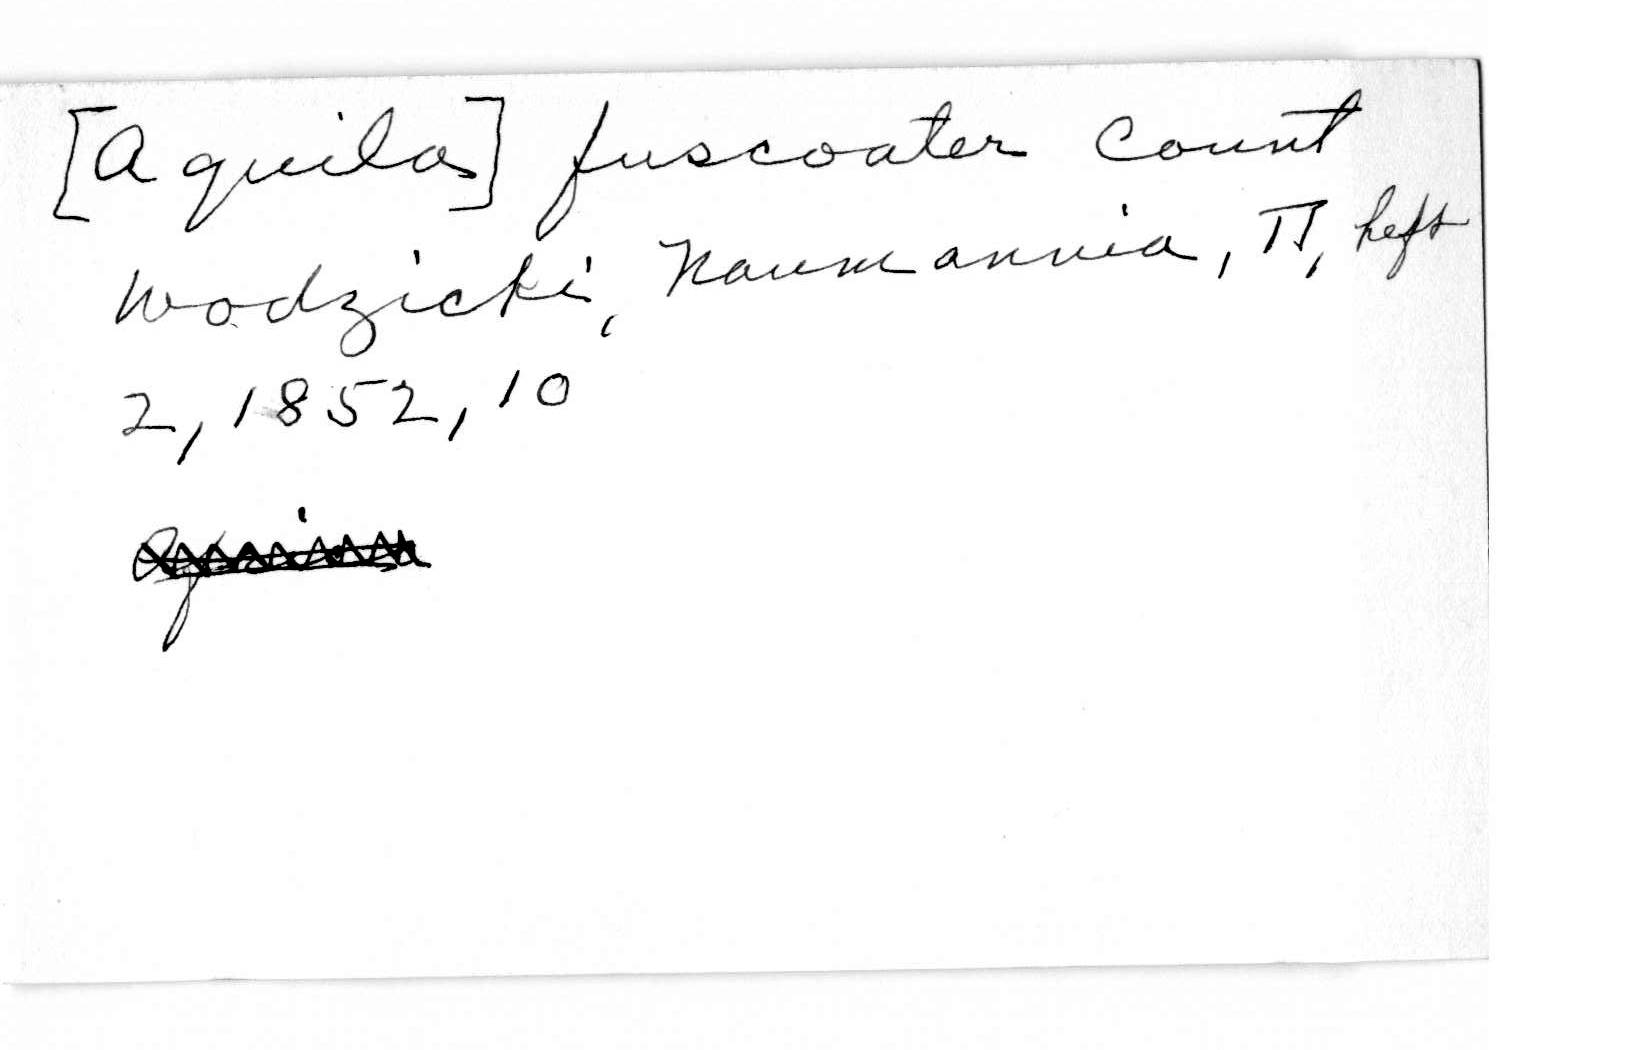 [Aquila] fuscoater Count
Wodzicki, Naumannia, II, heft
2, 1852, 10